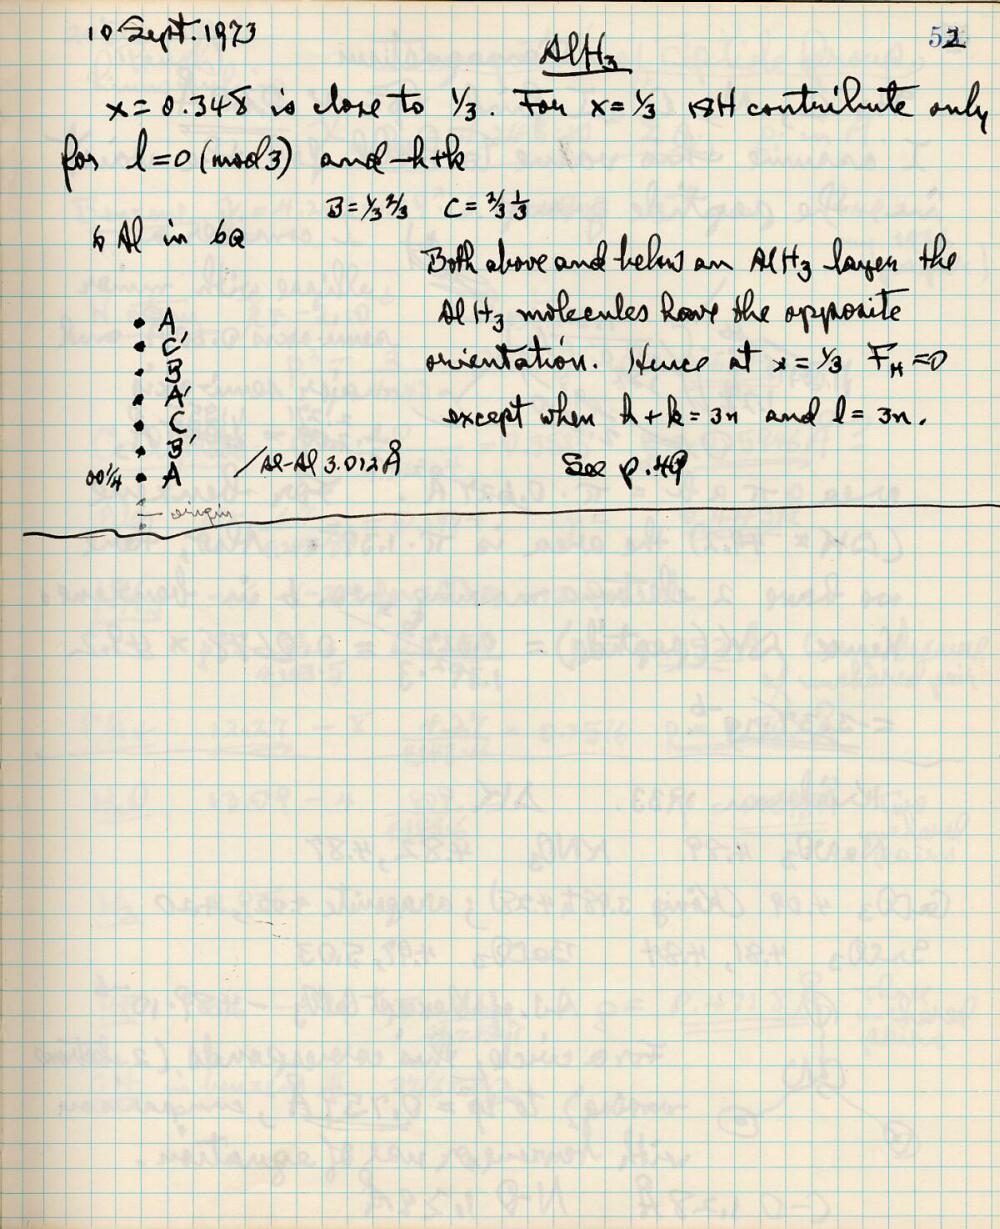 10 Sept. 1973
52
AlH₃
x = 0.348 is close to 1/3. For x = 1/3 18H contribute only
for l = 0 (mod 3) and -h+k
B = 1/3 2/3 C = 2/3 1/3
6 Al in 6a
Both above and below an AlH₃ layer the
AlH₃ molecules have the opposite
orientation. Hence at x = 1/3 F_H = 0
except when h + k = 3n and l = 3n.
See p. 49
A
C'
B
A'
C
B'
00 1/4 A
Al-Al 3.012 Å
origin